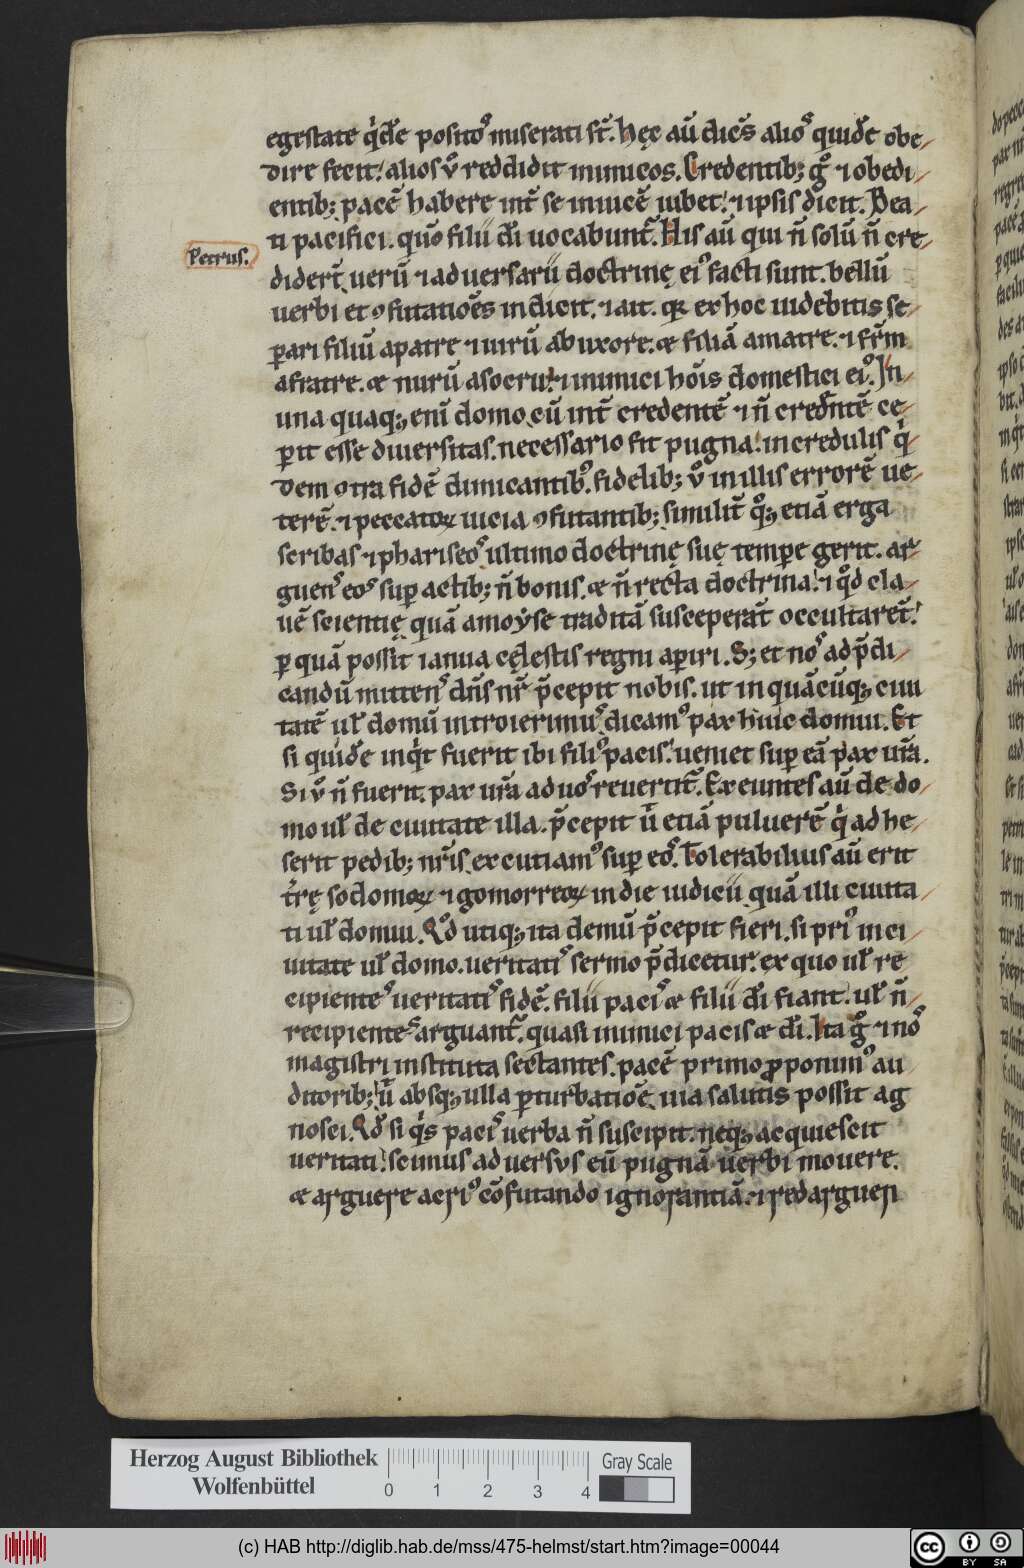 egestate q̇dē positꝰ miserati st̄. Hęc aū dicēs aliꝰ quidē obe
dire fecit. alios v̄ reddidit inimicos. Credentib; gͦ ⁊ obedi
entib; pacē habere int̄ se inuicē iubet. ⁊ ipsis dicit. Bea
ti pacifici. quō filii dī uocabunt̄. His aū qui n̄ solū n̄ cre
Petrus.
didert̄ uerū ⁊ aduersarii doctrinę eiꝰ facti sunt. bellū
uerbi et ꝯfutatiōes indicit. ⁊ ait. qꝛ ex hoc uidebitis se
ꝑari filiū apatre ⁊ uirū ab uxore. æ filiā amatre. ⁊ fr̄m
afratre. æ nurū asocru. ⁊ inimici hoīs domestici eiꝰ. In
una quaq; enī domo cū int̄ credentē ⁊ n̄ credn̄tē ce
ꝑit esse diuersitas. necessario fit pugna. incredulis q̇
dem ꝯtra fidē dimicantibꝰ. fidelib; v̊ in illis errorē ue
terē. ⁊ peccatoꝝ uicia ꝯfutantib; similit̄ qͦ; etiā erga
scribas ⁊ phariseoꝰ ultimo doctrinę suę tempe gerit. ar
guenꝰ eoꝰ suꝑ actib; n̄ bonis. æ n̄ recta doctrina. ⁊ qͦd cla
uē scientię quā amoyse traditā susceperat̄ occultaret̄.
ꝑ quā possit ianua cęlestis regni aꝑiri. S; et noꝰ ad p̄di
candū mittenꝰ dn̄s nr̄ p̄cepit nobis. ut in quācūq; ciui
tatē ul̄ domū introierimuꝰ dicamꝰ pax huic domui. Et
si quidē inq̇t fuerit ibi filiꝰ pacis. ueniet suꝑ eā pax ur̄a.
Si v̊ n̄ fuerit. pax ur̄a ad uoꝰ reuertit̄. Exeuntes aū de do
mo ul̄ de ciuitate illa. p̄cepit ū etiā puluerē q̇ ad he
serit pedib; nr̄is excutiamꝰ suꝑ eoꝰ. Tolerabilius aū erit
tr̄ę sodomoꝝ ⁊ gomorreoꝝ in die iudicii quā illi ciuita
ti ul̄ domui. Qͦd utiq; ita demū p̄cepit fieri. si priꝰ in ci
uitate ul̄ domo. ueritatiꝰ sermo p̄dicetur. ex quo ul̄ re
cipienteꝰ ueritatiꝰ fidē. filii paciꝰ æ filii dī fiant. ul̄ n̄
recipienteꝰ arguant̄. quasi inimici pacis æ dī. Ita gͦ ⁊ noꝰ
magistri instituta sectantes. pacē primo ꝓponimꝰ au
ditorib; ū absq; ulla ꝑturbatiōe uia salutis possit ag
nosci. Qd̄ si q̇s paciꝰ uerba n̄ suscipit. neq; acquiescit
ueritati. scimus aduersvs eū pugnā uerbi mouere.
æ arguere acriꝰ cōfutando ignorantiā. ⁊ redargueri
Herzog August Bibliothek
Wolfenbüttel
0 1 2 3 4
Gray Scale
(c) HAB http://diglib.hab.de/mss/475-helmst/start.htm?image=00044
cc BY SA